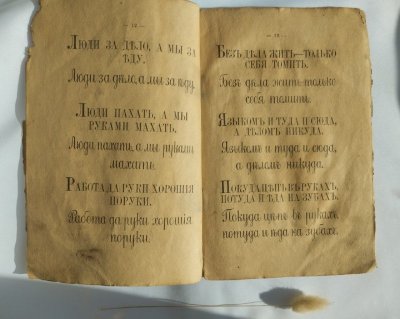 — 12 —
Люди за дѣло, а мы за
ѣду.
Люди за дѣло, а мы за ѣду.
Люди пахать, а мы
руками махать.
Люди пахать, а мы руками
махать.
Работа да руки хорошія
поруки.
Работа да руки хорошія
поруки.
— 13 —
Безъ дѣла жить—только
себя томить.
Безъ дѣла жить только
себя томить.
Языкомъ и туда и сюда,
а дѣломъ никуда.
Языкомъ и туда и сюда,
а дѣломъ никуда.
Покуда цѣпъ въ рукахъ,
потуда и ѣда на зубахъ.
Покуда цѣпъ въ рукахъ,
потуда и ѣда на зубахъ.